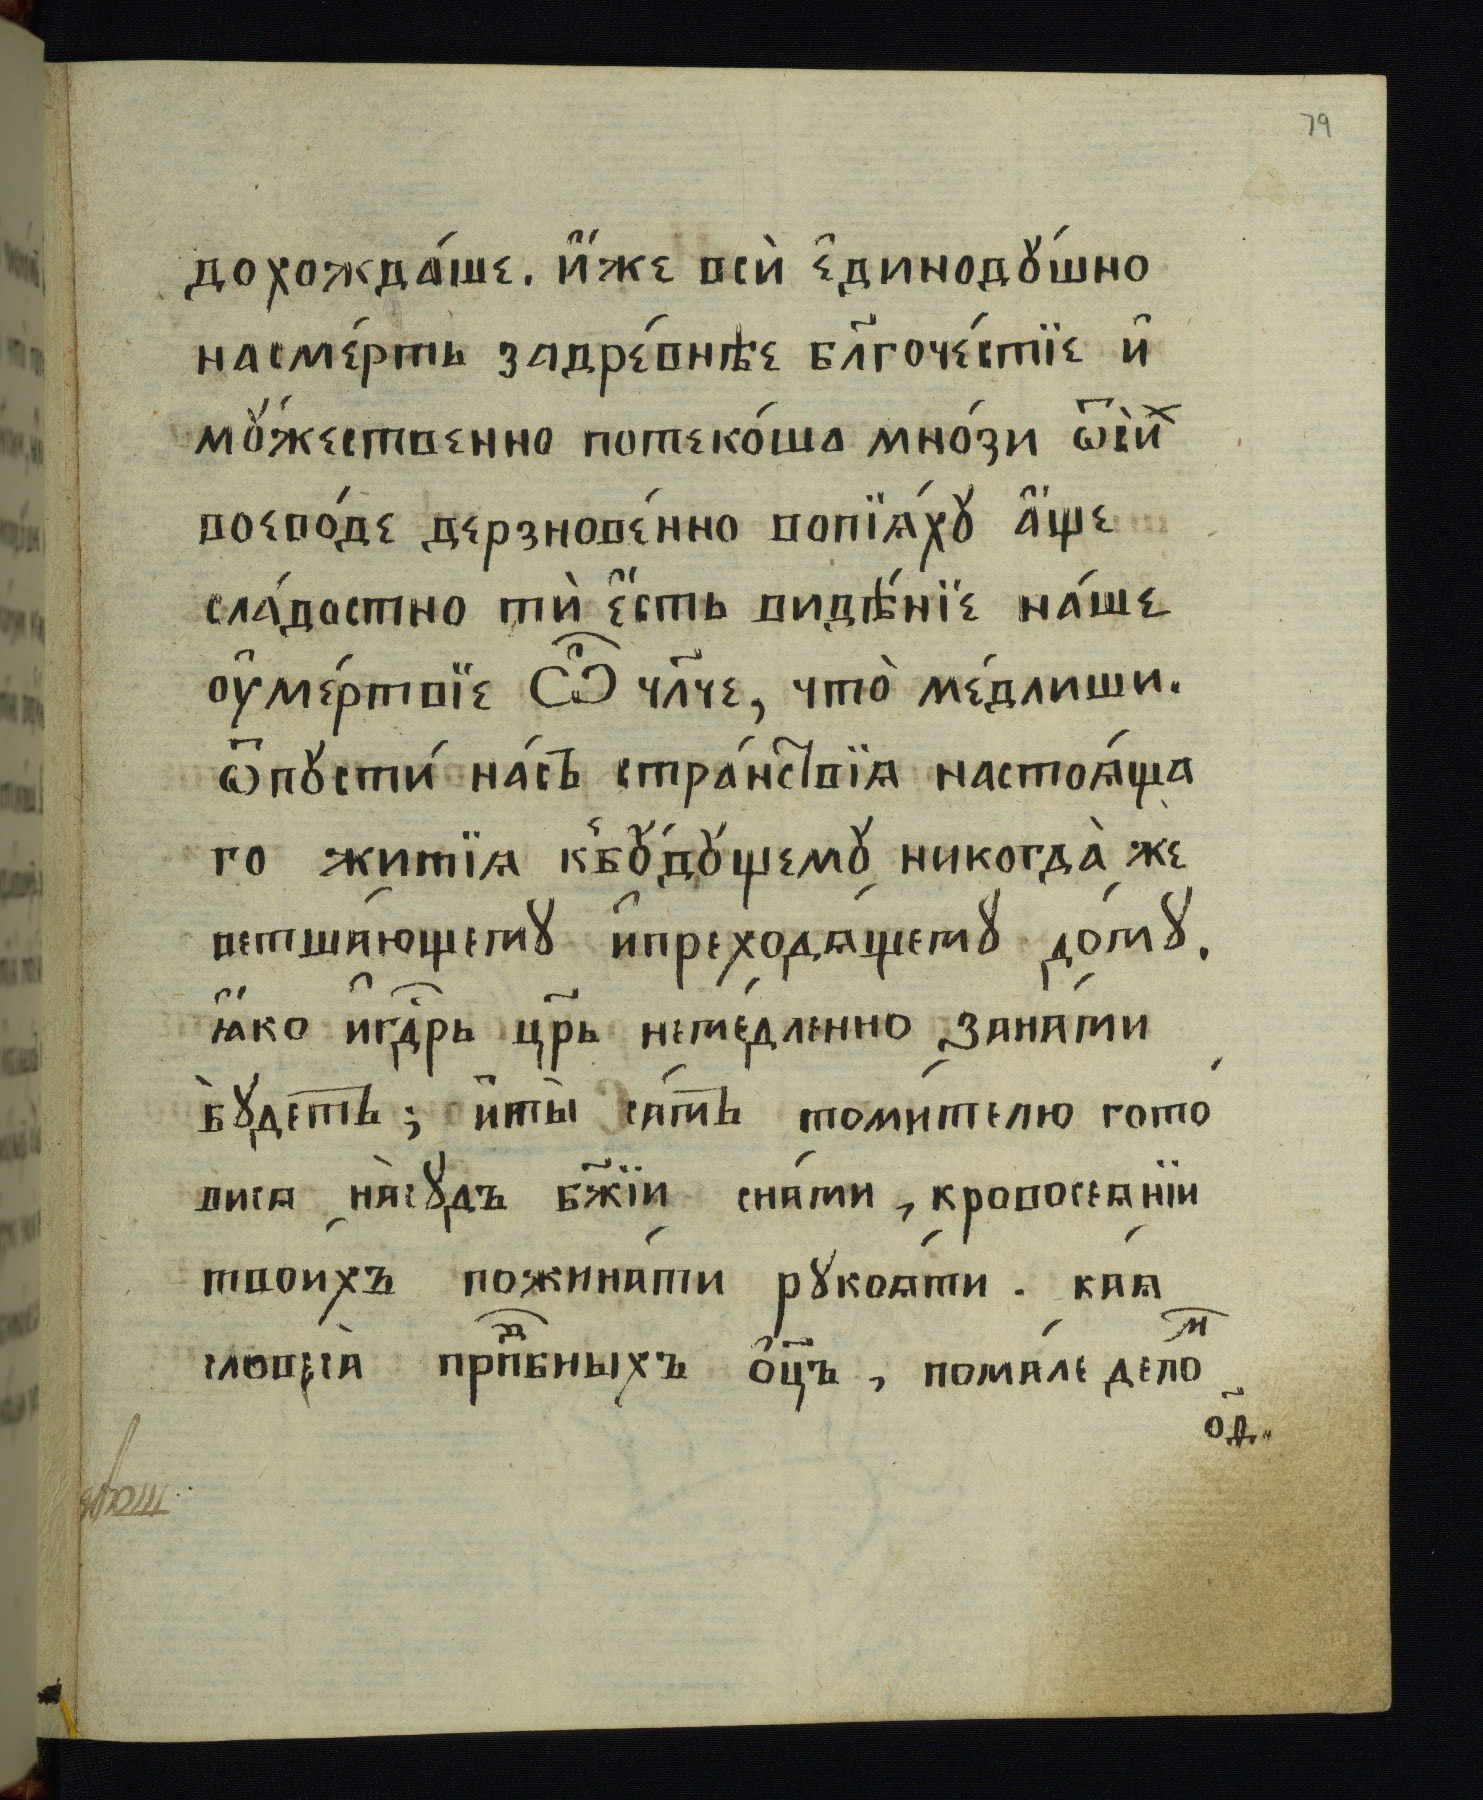 79
дохожда́ше. и҆́же всѝ є҆динодꙋ́шно
насме́рть задре́внѣе бл҃гоче́стїе и҆
мꙋ́жественно потеко́ша мно́зи ѿси́ⷯ
воево́де дерзнове́нно вопїѧ́хꙋ а҆́ще
сла́достно тѝ є҆́сть видѣ́нїе на́ше
оу҆ме́ртвїе Ѽ чл҃че, что̀ ме́длиши.
ѿпꙋсти́ на́съ стра́нс҃твїѧ настоѧ́ща
го житїѧ къ бꙋ́дꙋщемꙋ никогда̀ жѐ
ветша́ющемꙋ и҆преходѧ́щемꙋ до́мꙋ.
ꙗ҆́ко и҆гдⷭ҇рь цр҃ь неме́дленно заня́ти
бꙋдетъ; и҆ты̀ са́мъ томи́телю гото́
висѧ на̀сꙋдъ бж҃їи снѧ́ти, кровосеѧнїи
твои́хъ пожина́ти рꙋкоѧ́ти. ка́ѧ
словеса̀ прпⷣбныхъ о҆ц҃ъ, пома́ле дело́ⷨ
о҃д.